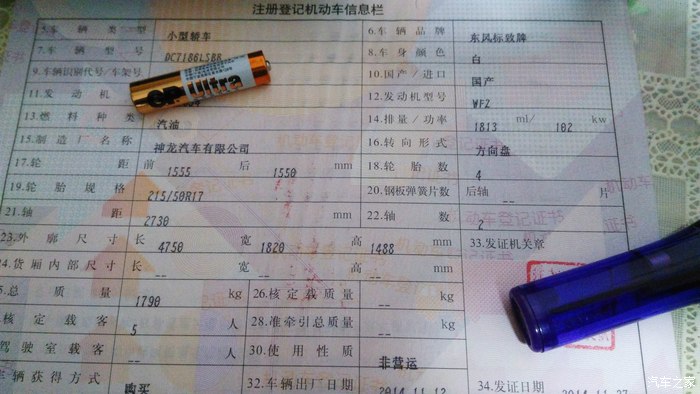 注册登记机动车信息栏
5.车辆类型 小型轿车 6.车辆品牌 东风标致牌
7.车辆型号 DC7186LSBB 8.车身颜色 白
9.车辆识别代号/车架号 10.国产/进口 国产
11.发动机 12.发动机型号 WFZ
13.燃料种类 汽油 14.排量/功率 1813 ml/ 102 kw
15.制造厂名称 神龙汽车有限公司 16.转向形式 方向盘
17.轮距 前 1555 后 1550 mm 18.轮胎数 4
19.轮胎规格 215/50R17 20.钢板弹簧片数 后轴 -- 片
21.轴距 2730 mm 22.轴数 2
23.外廓尺寸 长 4750 宽 1820 高 1488 mm 33.发证机关章
24.货厢内部尺寸 长 -- 宽 -- 高 -- mm
总质量 1790 kg 26.核定载质量 -- kg
核定载客 5 人 28.准牵引总质量 -- kg
驾驶室载客 -- 人 30.使用性质 非营运
车辆获得方式 购买 32.车辆出厂日期 2014-11-12 34.发证日期 2014-11-27
GP Ultra
机动车
动车登记证书
证书
汽车之家